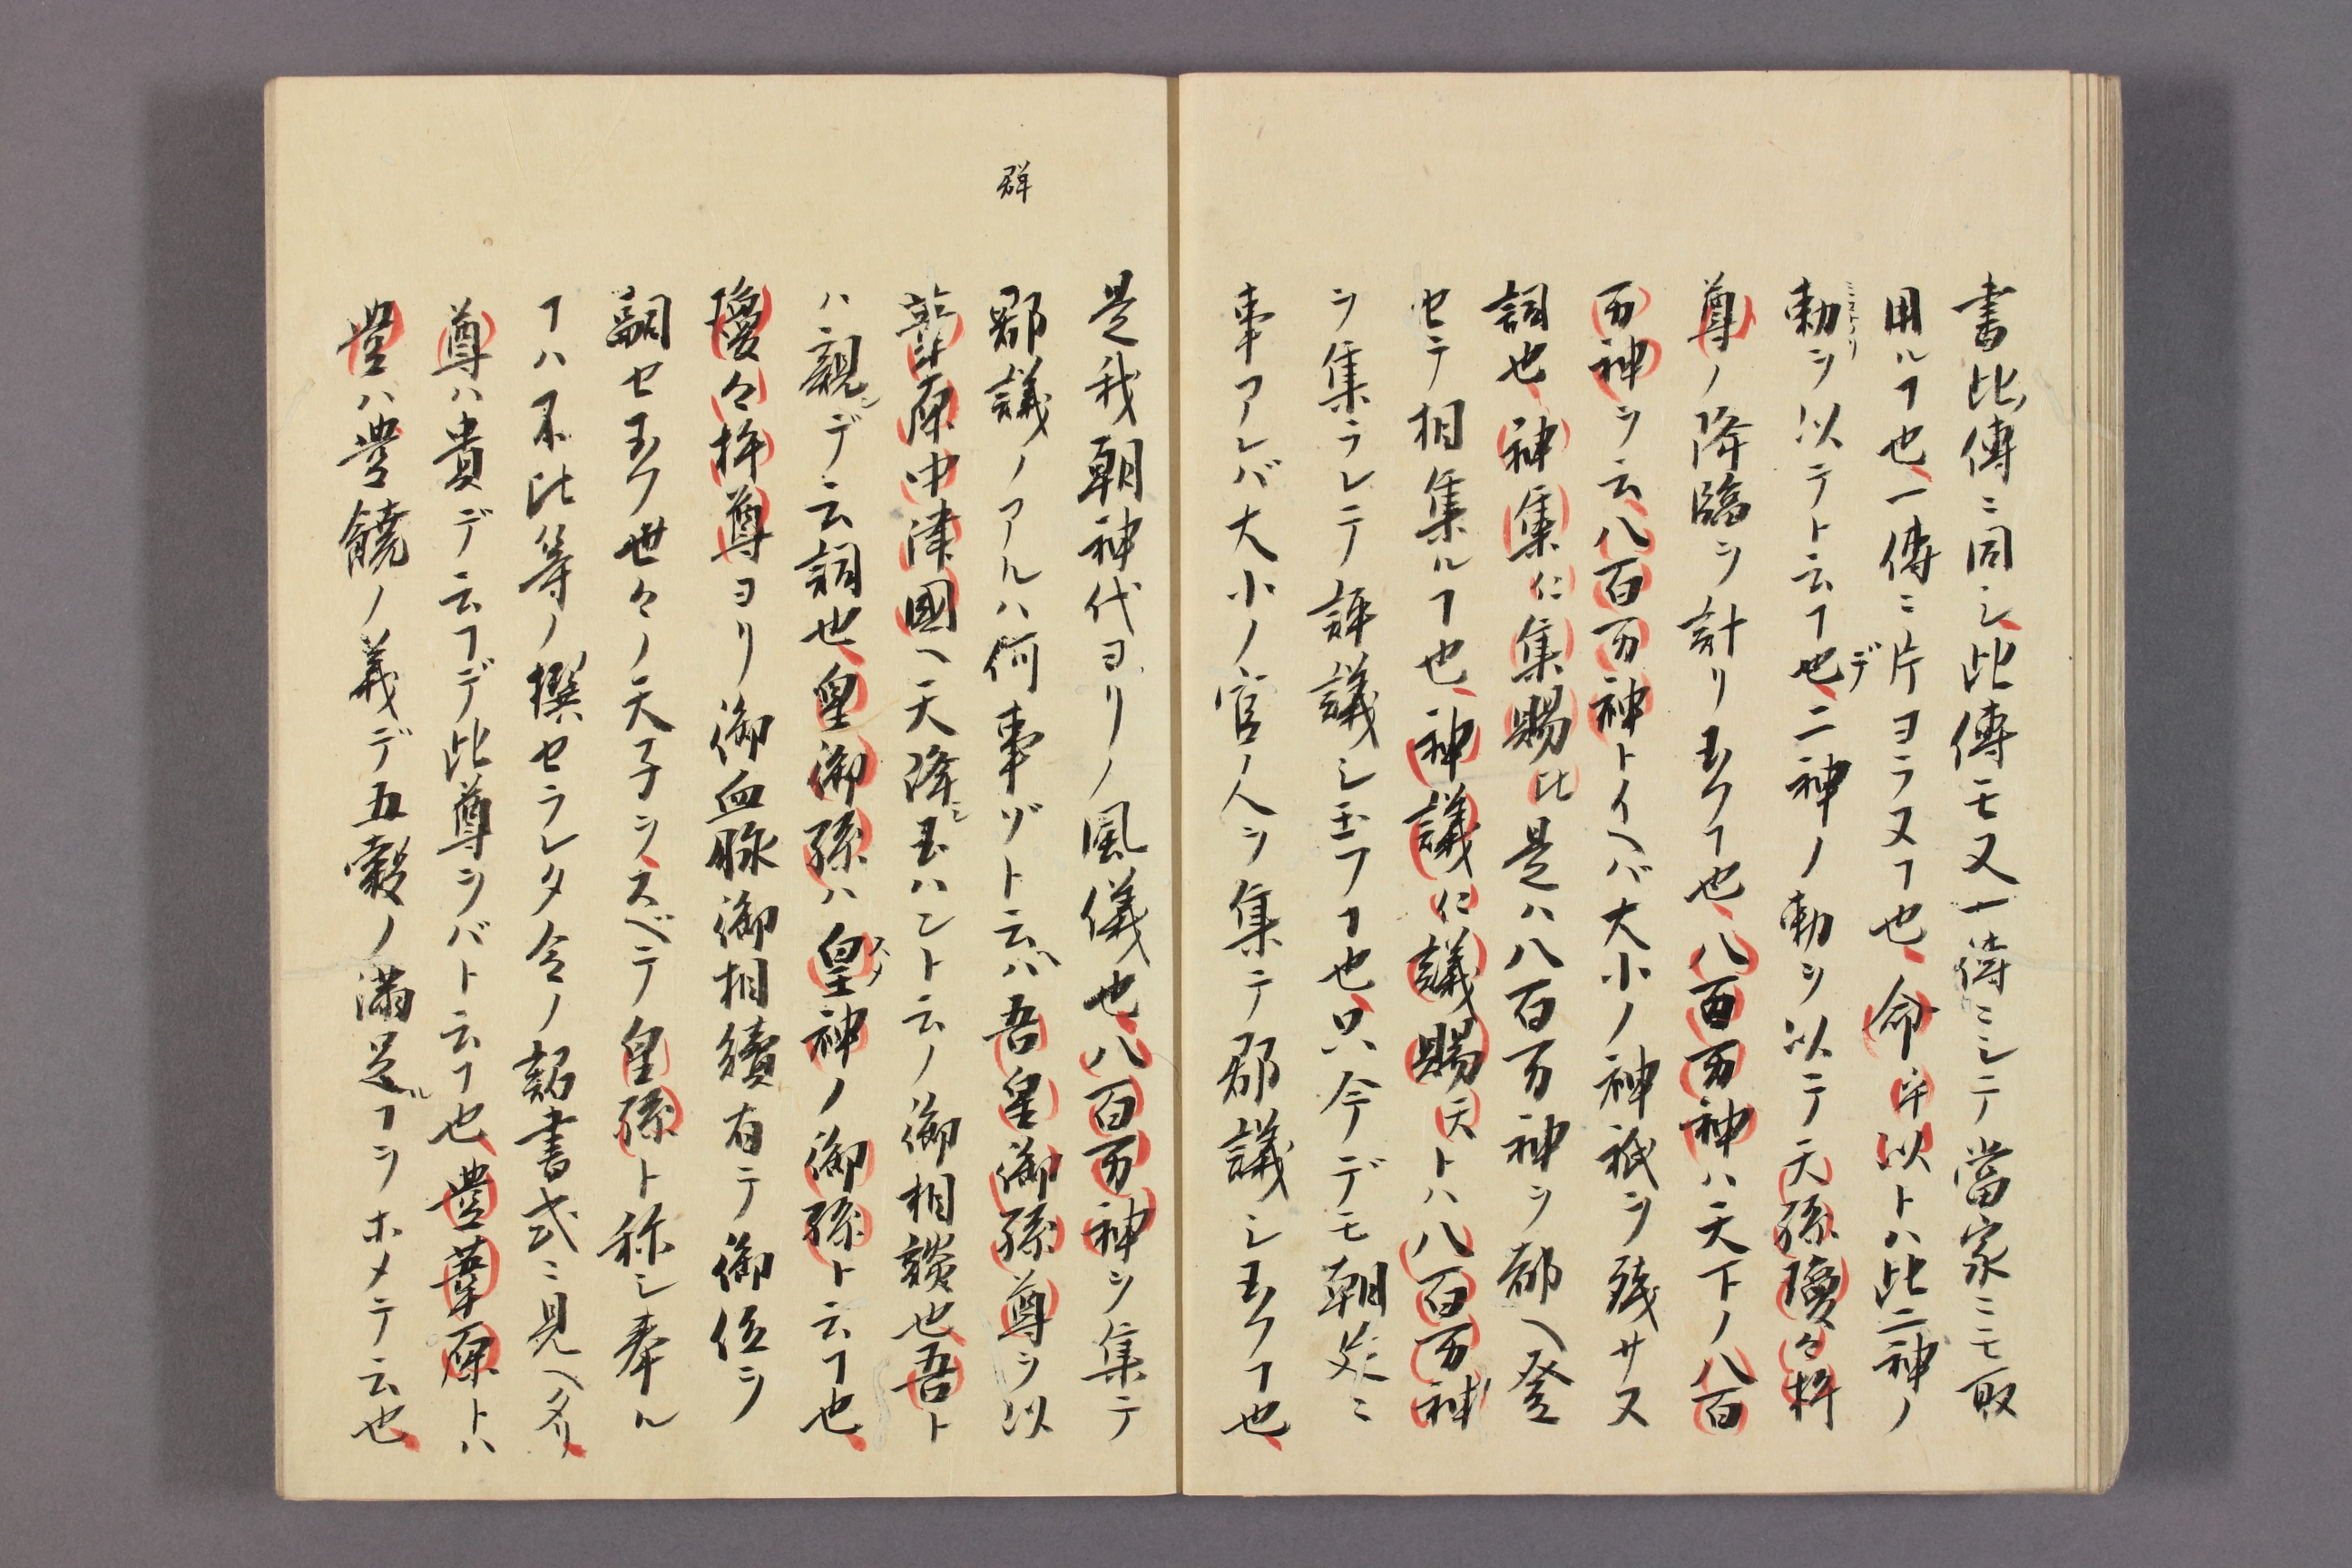 書此傳ニ同シ此傳モ又一傳ニシテ當家ニモ取
用ルヿ也一傳ニ片ヨラヌヿ也命乎以トハ此二神ノ
勅ヲ以テト云ヿ也二神ノ勅ヲ以テ天孫瓊々杵
ミコトノリ
デ
尊ノ降臨ヲ計リ玉フヿ也八百万神ハ天下ノ八百
万神ヲ云八百万神トイヘバ大小ノ神祇ヲ残サス
詞也神集仁集賜比是ハ八百万神ヲ都ヘ登
セテ相集ルヿ也神議仁議賜天トハ八百万神
ヲ集ラレテ評議シ玉フヿ也只今デモ朝廷ニ
事アレバ大小ノ官人ヲ集テ郡議シ玉フヿ也
是我朝神代ヨリノ風儀也八百万神ヲ集テ
群
郡議ノアルハ何事ゾト云ハ吾皇御孫尊ヲ以
葦原中津國ヘ天降シ玉ハント云ノ御相談也吾ト
ハ親シデ云詞也皇御孫ハ皇神ノ御孫ト云ヿ也
スメ
瓊々杵尊ヨリ御血脉御相續有テ御位ヲ
嗣セ玉フ世々ノ天子ヲスベテ皇孫ト称シ奉ル
ヿハ不比等ノ撰セラレタ令ノ詔書式ニ見ヘタリ
尊ハ貴デ云ヿデ此尊ヲバト云ヿ也豊葦原トハ
豊ハ豊饒ノ義デ五穀ノ満足ルヿヲホメテ云也